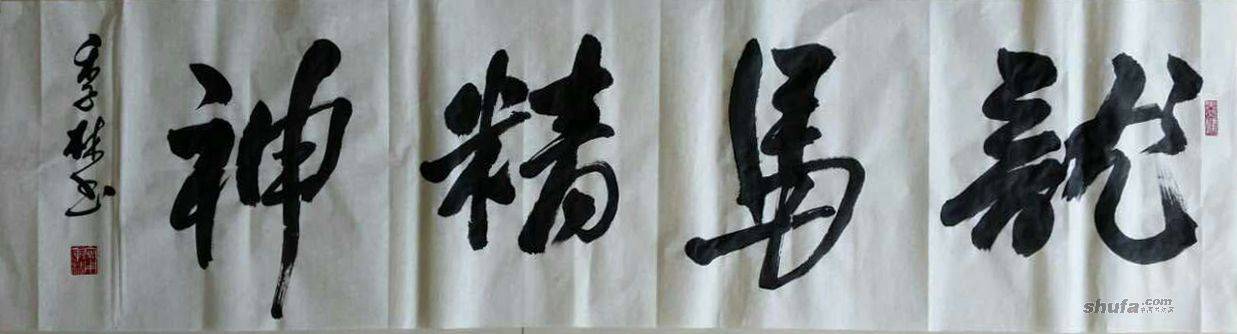 龍馬精神
李林书
shufa.com